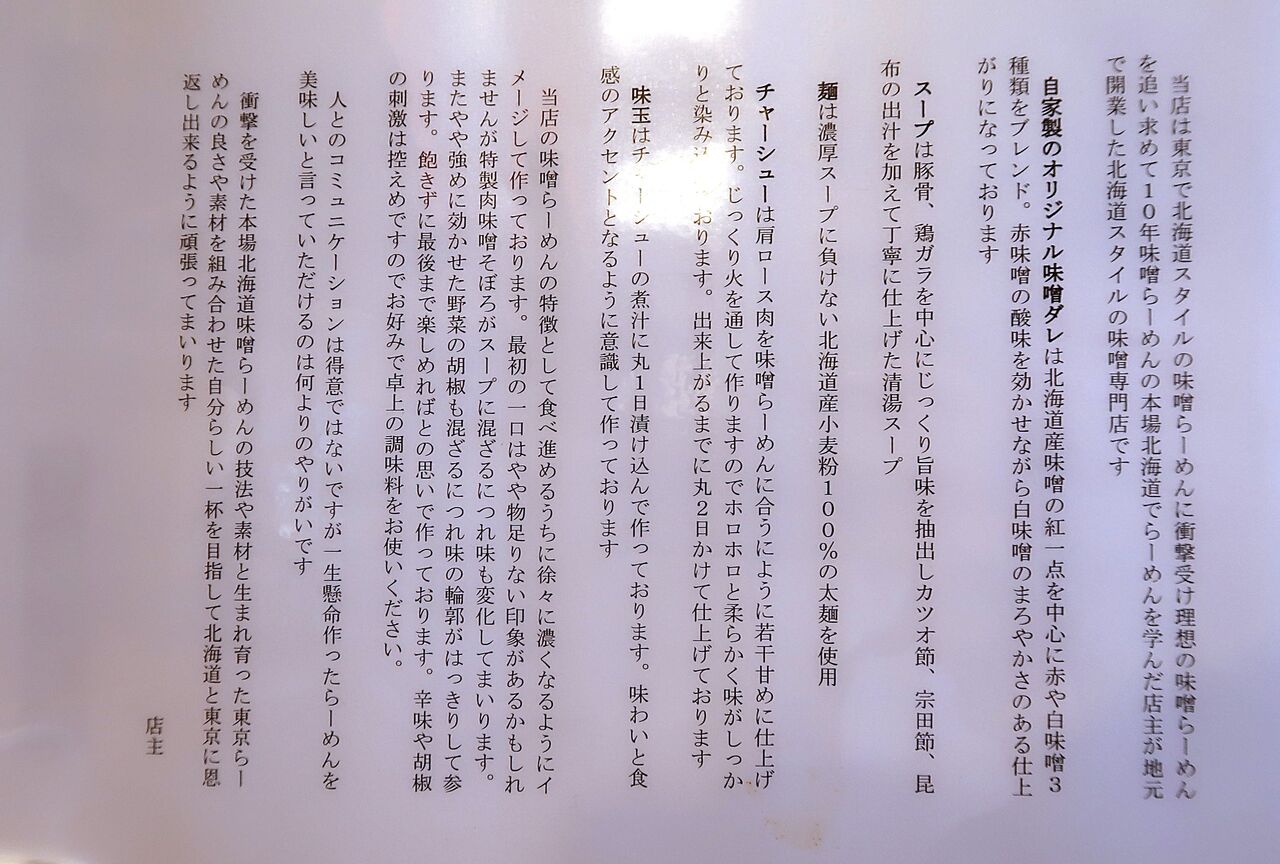 当店は東京で北海道スタイルの味噌らーめんに衝撃受け理想の味噌らーめん
を追い求めて１０年味噌らーめんの本場北海道でらーめんを学んだ店主が地元
で開業した北海道スタイルの味噌専門店です
自家製のオリジナル味噌ダレは北海道産味噌の紅一点を中心に赤や白味噌３
種類をブレンド。赤味噌の酸味を効かせながら白味噌のまろやかさのある仕上
がりになっております
スープは豚骨、鶏ガラを中心にじっくり旨味を抽出しカツオ節、宗田節、昆
布の出汁を加えて丁寧に仕上げた清湯スープ
麺は濃厚スープに負けない北海道産小麦粉１００％の太麺を使用
チャーシューは肩ロース肉を味噌らーめんに合うにように若干甘めに仕上げ
ております。じっくり火を通して作りますのでホロホロと柔らかく味がしっか
りと染み おります。出来上がるまでに丸２日かけて仕上げております
味玉はチャーシューの煮汁に丸１日漬け込んで作っております。味わいと食
感のアクセントとなるように意識して作っております
当店の味噌らーめんの特徴として食べ進めるうちに徐々に濃くなるようにイ
メージして作っております。最初の一口はやや物足りない印象があるかもしれ
ませんが特製肉味噌そぼろがスープに混ざるにつれ味も変化してまいります。
またやや強めに効かせた野菜の胡椒も混ざるにつれ味の輪郭がはっきりして参
ります。飽きずに最後まで楽しめればとの思いで作っております。辛味や胡椒
の刺激は控えめですのでお好みで卓上の調味料をお使いください。
人とのコミュニケーションは得意ではないですが一生懸命作ったらーめんを
美味しいと言っていただけるのは何よりのやりがいです
衝撃を受けた本場北海道味噌らーめんの技法や素材と生まれ育った東京らー
めんの良さや素材を組み合わせた自分らしい一杯を目指して北海道と東京に恩
返し出来るように頑張ってまいります
店主